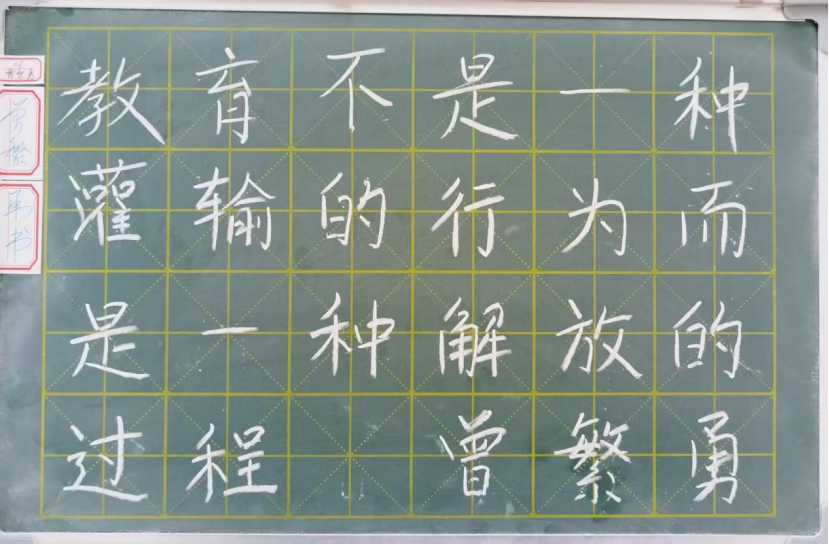 教育不是一种
灌输的行为而
是一种解放的
过程 曾繁勇
曾繁
书